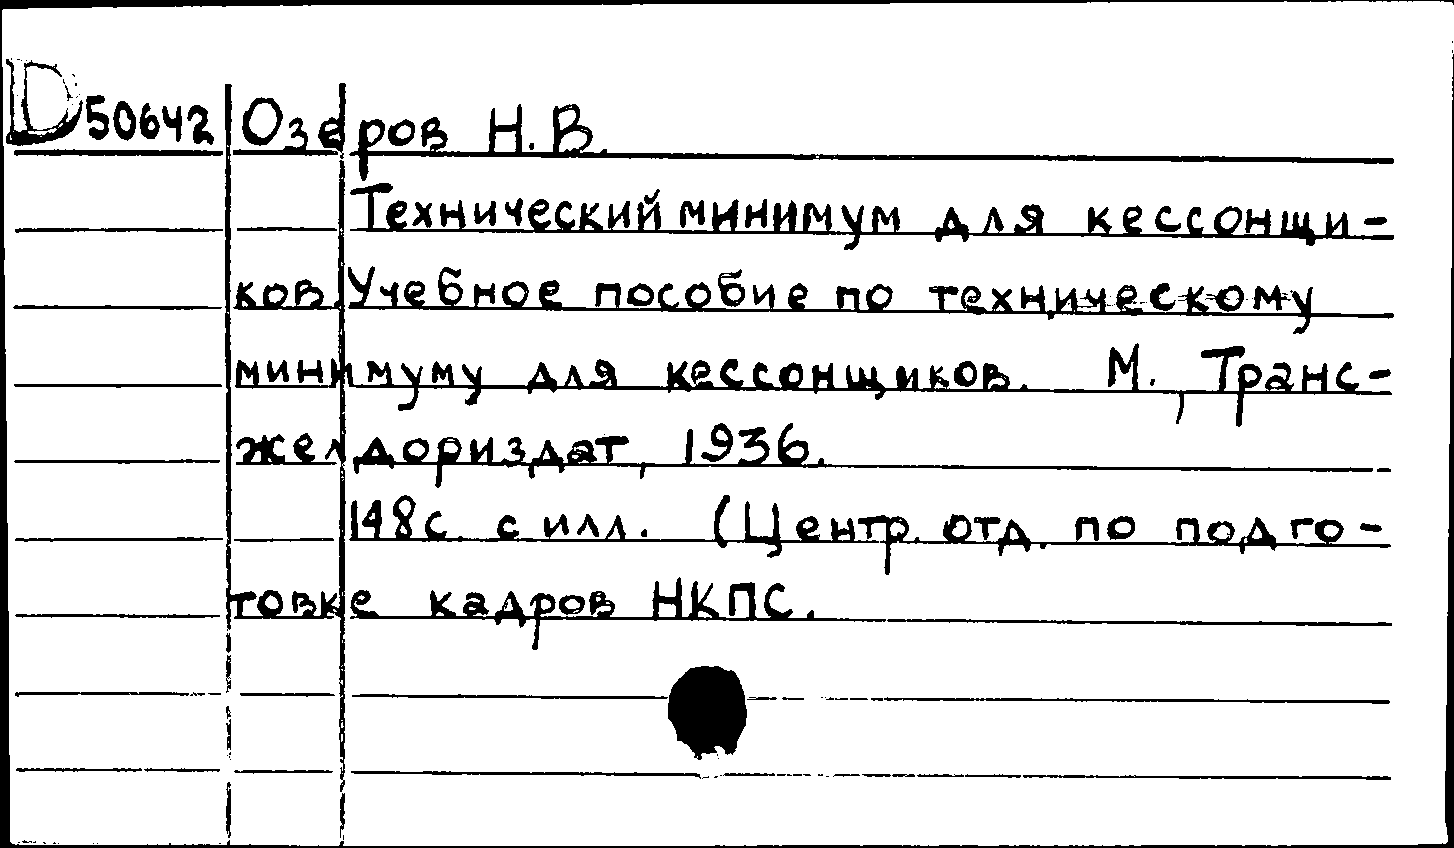 D50642 Озеров Н.В.
Технический минимум для кессонщи-
ков. Учебное пособие по техническому
минимуму для кессонщиков. М., Транс-
желдориздат, 1936.
148с. с илл. (Центр. отд. по подго-
товке кадров НКПС.